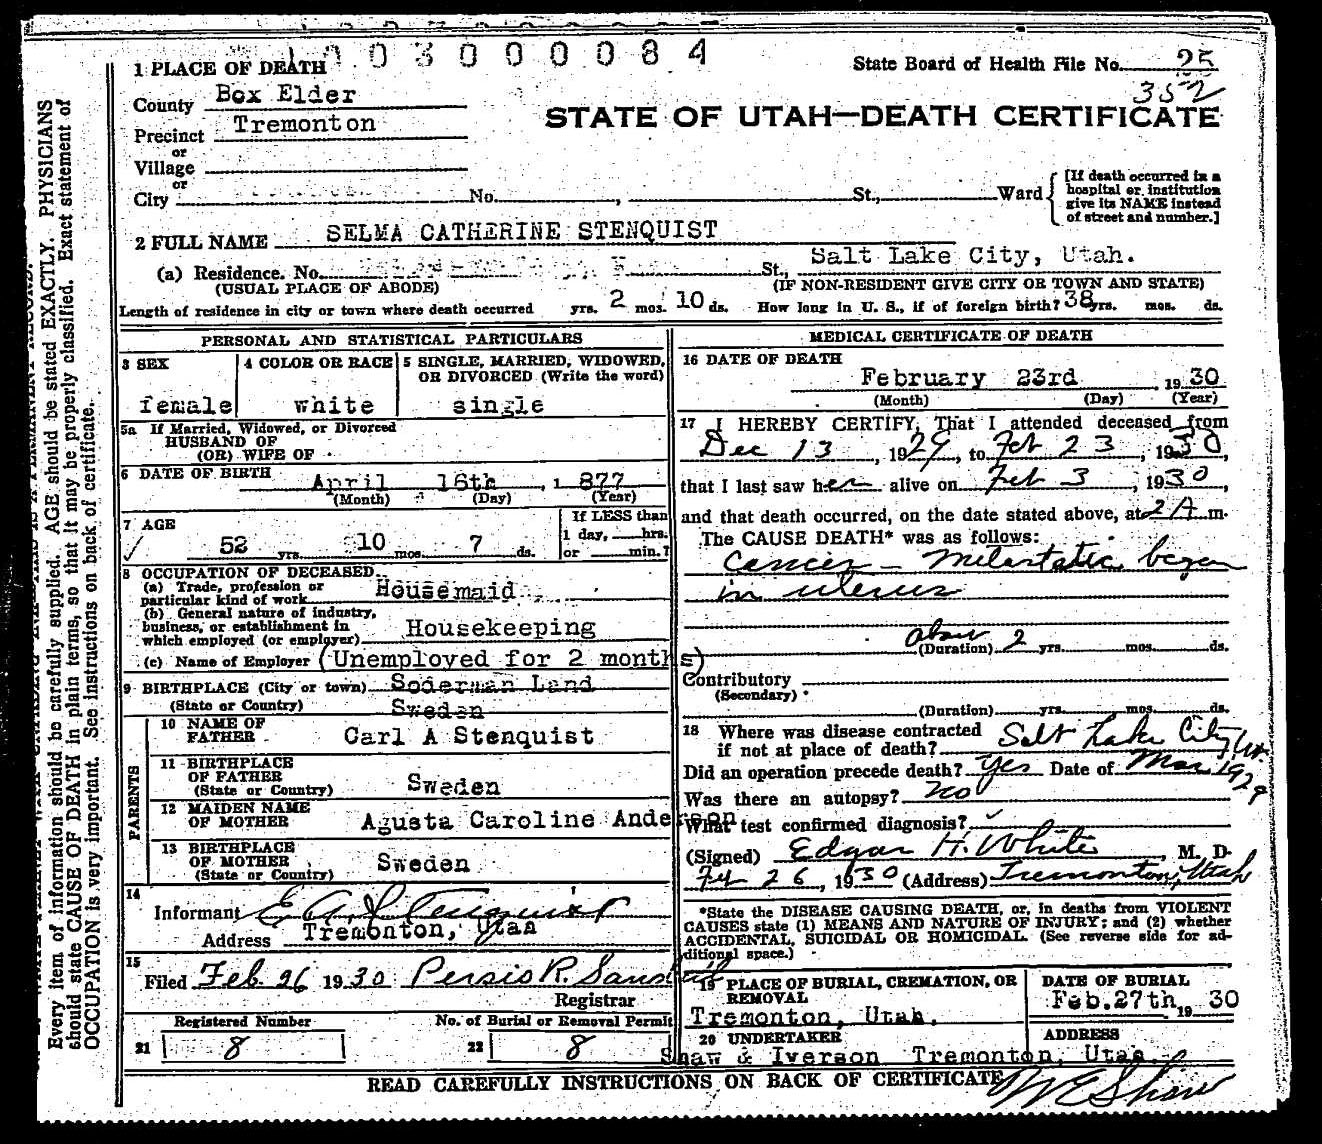 003000084
1 PLACE OF DEATH
State Board of Health File No. 25
352
County Box Elder
STATE OF UTAH—DEATH CERTIFICATE
Precinct Tremonton
or
Village
or
City No. , St., Ward
[If death occurred in a hospital or institution give its NAME instead of street and number.]
2 FULL NAME SELMA CATHERINE STENQUIST
(a) Residence. No. St., Salt Lake City, Utah.
(USUAL PLACE OF ABODE) (IF NON-RESIDENT GIVE CITY OR TOWN AND STATE)
Length of residence in city or town where death occurred yrs. 2 mos. 10 ds. How long in U. S., if of foreign birth? 38 yrs. mos. ds.
PERSONAL AND STATISTICAL PARTICULARS
3 SEX 4 COLOR OR RACE 5 SINGLE, MARRIED, WIDOWED,
OR DIVORCED (Write the word)
female white single
5a If Married, Widowed, or Divorced
HUSBAND OF
(OR) WIFE OF
6 DATE OF BIRTH April 16th , 1 877
(Month) (Day) (Year)
7 AGE If LESS than
52 yrs. 10 mos. 7 ds. 1 day, hrs.
or min.?
8 OCCUPATION OF DECEASED
(a) Trade, profession or
particular kind of work Housemaid
(b) General nature of industry,
business, or establishment in
which employed (or employer) Housekeeping
(c) Name of Employer (Unemployed for 2 months)
9 BIRTHPLACE (City or town) Soderman Land
(State or Country) Sweden
PARENTS
10 NAME OF
FATHER Carl A Stenquist
11 BIRTHPLACE
OF FATHER
(State or Country) Sweden
12 MAIDEN NAME
OF MOTHER Agusta Caroline Anderson
13 BIRTHPLACE
OF MOTHER
(State or Country) Sweden
14
Informant E A Stenquist
Address Tremonton, Utah
15
Filed Feb. 26 1930 Persis R. 
Registrar
Registered Number No. of Burial or Removal Permit
21 8 22 8
MEDICAL CERTIFICATE OF DEATH
16 DATE OF DEATH
February 23rd , 1930
(Month) (Day) (Year)
17 I HEREBY CERTIFY, That I attended deceased from
Dec 13 , 1929, to Feb 23 , 1930,
that I last saw her alive on Feb 3 , 1930,
and that death occurred, on the date stated above, at 2 A m.
The CAUSE DEATH* was as follows:
Cancer – Metastatic began
in uterus
(Duration) about 2 yrs. mos. ds.
Contributory
(Secondary)
(Duration) yrs. mos. ds.
18 Where was disease contracted
if not at place of death? Salt Lake City Ut.
Did an operation precede death? Yes Date of Mar 1929
Was there an autopsy? No
What test confirmed diagnosis? ✓
(Signed) Edgar H. White , M. D.
Feb 26 , 1930 (Address) Tremonton, Utah
*State the DISEASE CAUSING DEATH, or, in deaths from VIOLENT
CAUSES state (1) MEANS AND NATURE OF INJURY; and (2) whether
ACCIDENTAL, SUICIDAL OR HOMICIDAL. (See reverse side for ad-
ditional space.)
19 PLACE OF BURIAL, CREMATION, OR
REMOVAL
Tremonton, Utah.
DATE OF BURIAL
Feb.27th, 19 30
20 UNDERTAKER ADDRESS
Shaw & Iverson Tremonton, Utah.
READ CAREFULLY INSTRUCTIONS ON BACK OF CERTIFICATE
W E Shaw
Every item of information should be carefully supplied. AGE should be stated EXACTLY. PHYSICIANS
should state CAUSE OF DEATH in plain terms, so that it may be properly classified. Exact statement of
OCCUPATION is very important. See instructions on back of certificate.